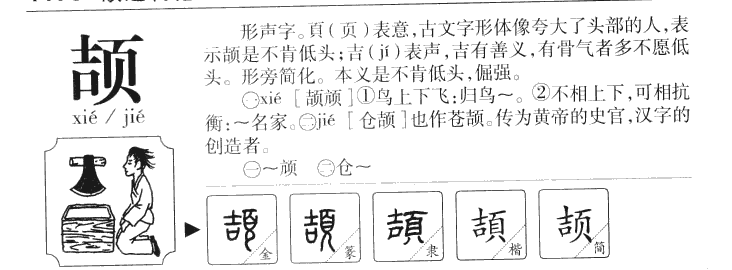 颉
xié / jié
形声字。頁(页)表意,古文字形体像夸大了头部的人,表
示颉是不肯低头;吉(jí)表声,吉有善义,有骨气者多不愿低
头。形旁简化。本义是不肯低头,倔强。
㊀xié [颉颃]①鸟上下飞:归鸟~。②不相上下,可相抗
衡:~名家。㊁jié [仓颉]也作苍颉。传为黄帝的史官,汉字的
创造者。
㊀~颃 ㊁仓~
頡 金
頡 篆
頡 隶
頡 楷
颉 简